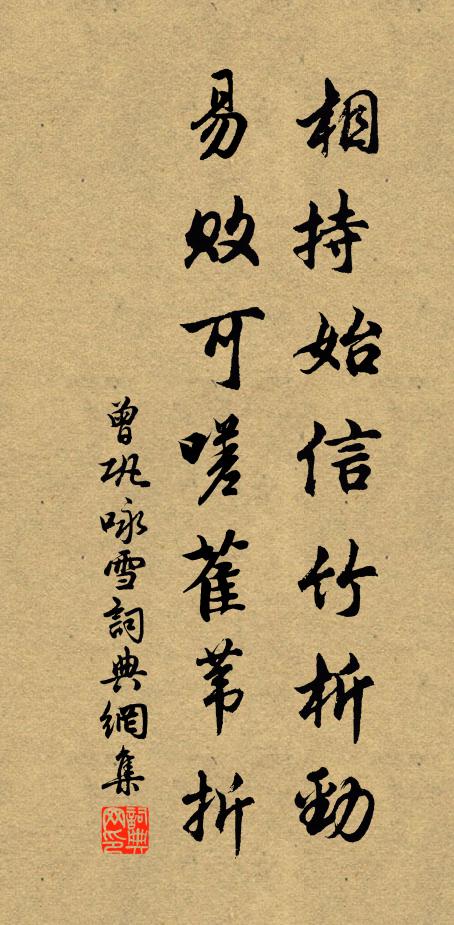 相持始信竹析勁
易敗可嗟萑苇折
曾巩咏雪詞典網集
詞典网印